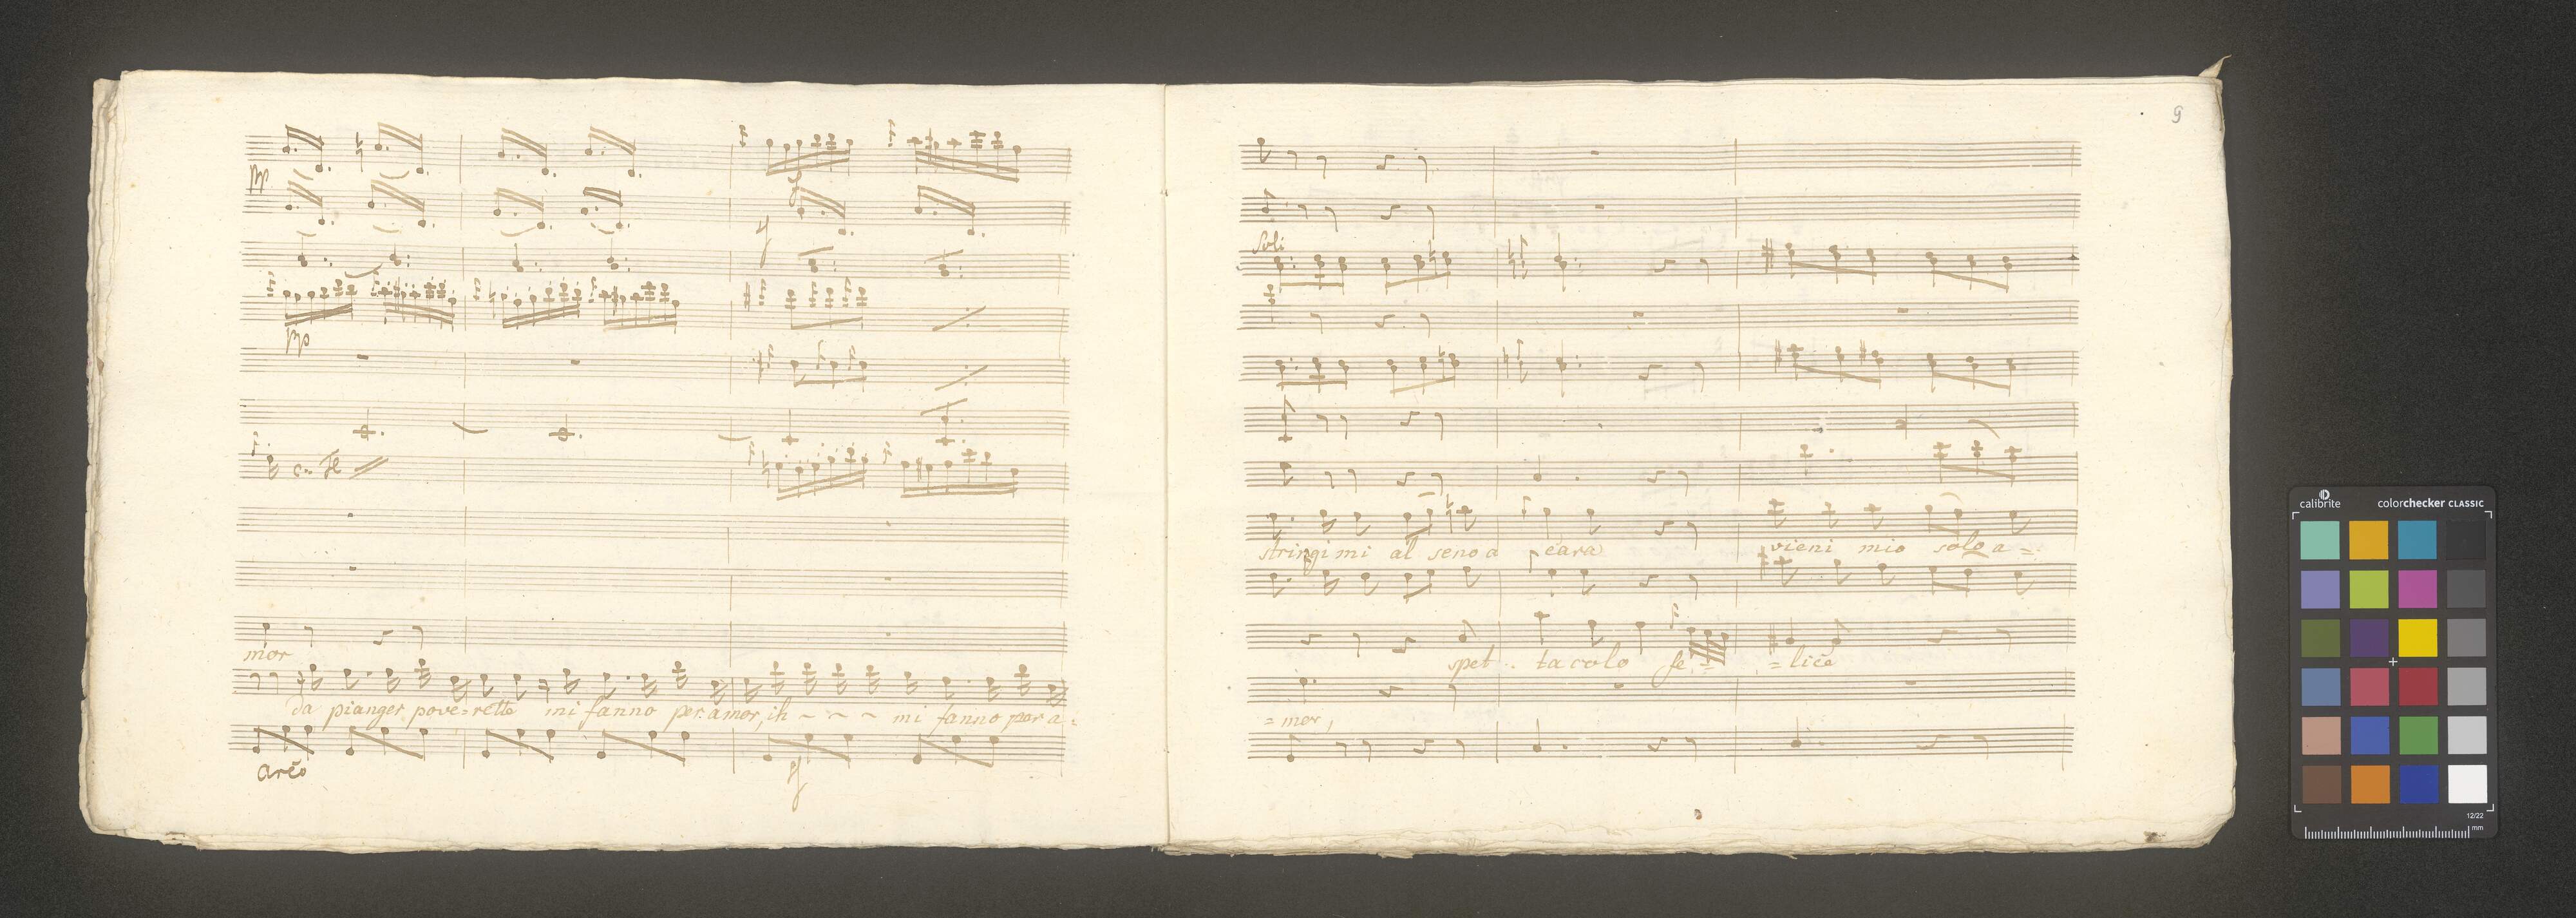 pp
pp
Co Fl
mor
da pianger pove=rette mi fanno per amor, ih ~ ~ ~ mi fanno per a=
arco
9
Soli
stringimi al seno a cara vieni mio solo a=
spet. tacolo fe= =lice
=mor,
calibrite colorchecker CLASSIC
12/22
mm